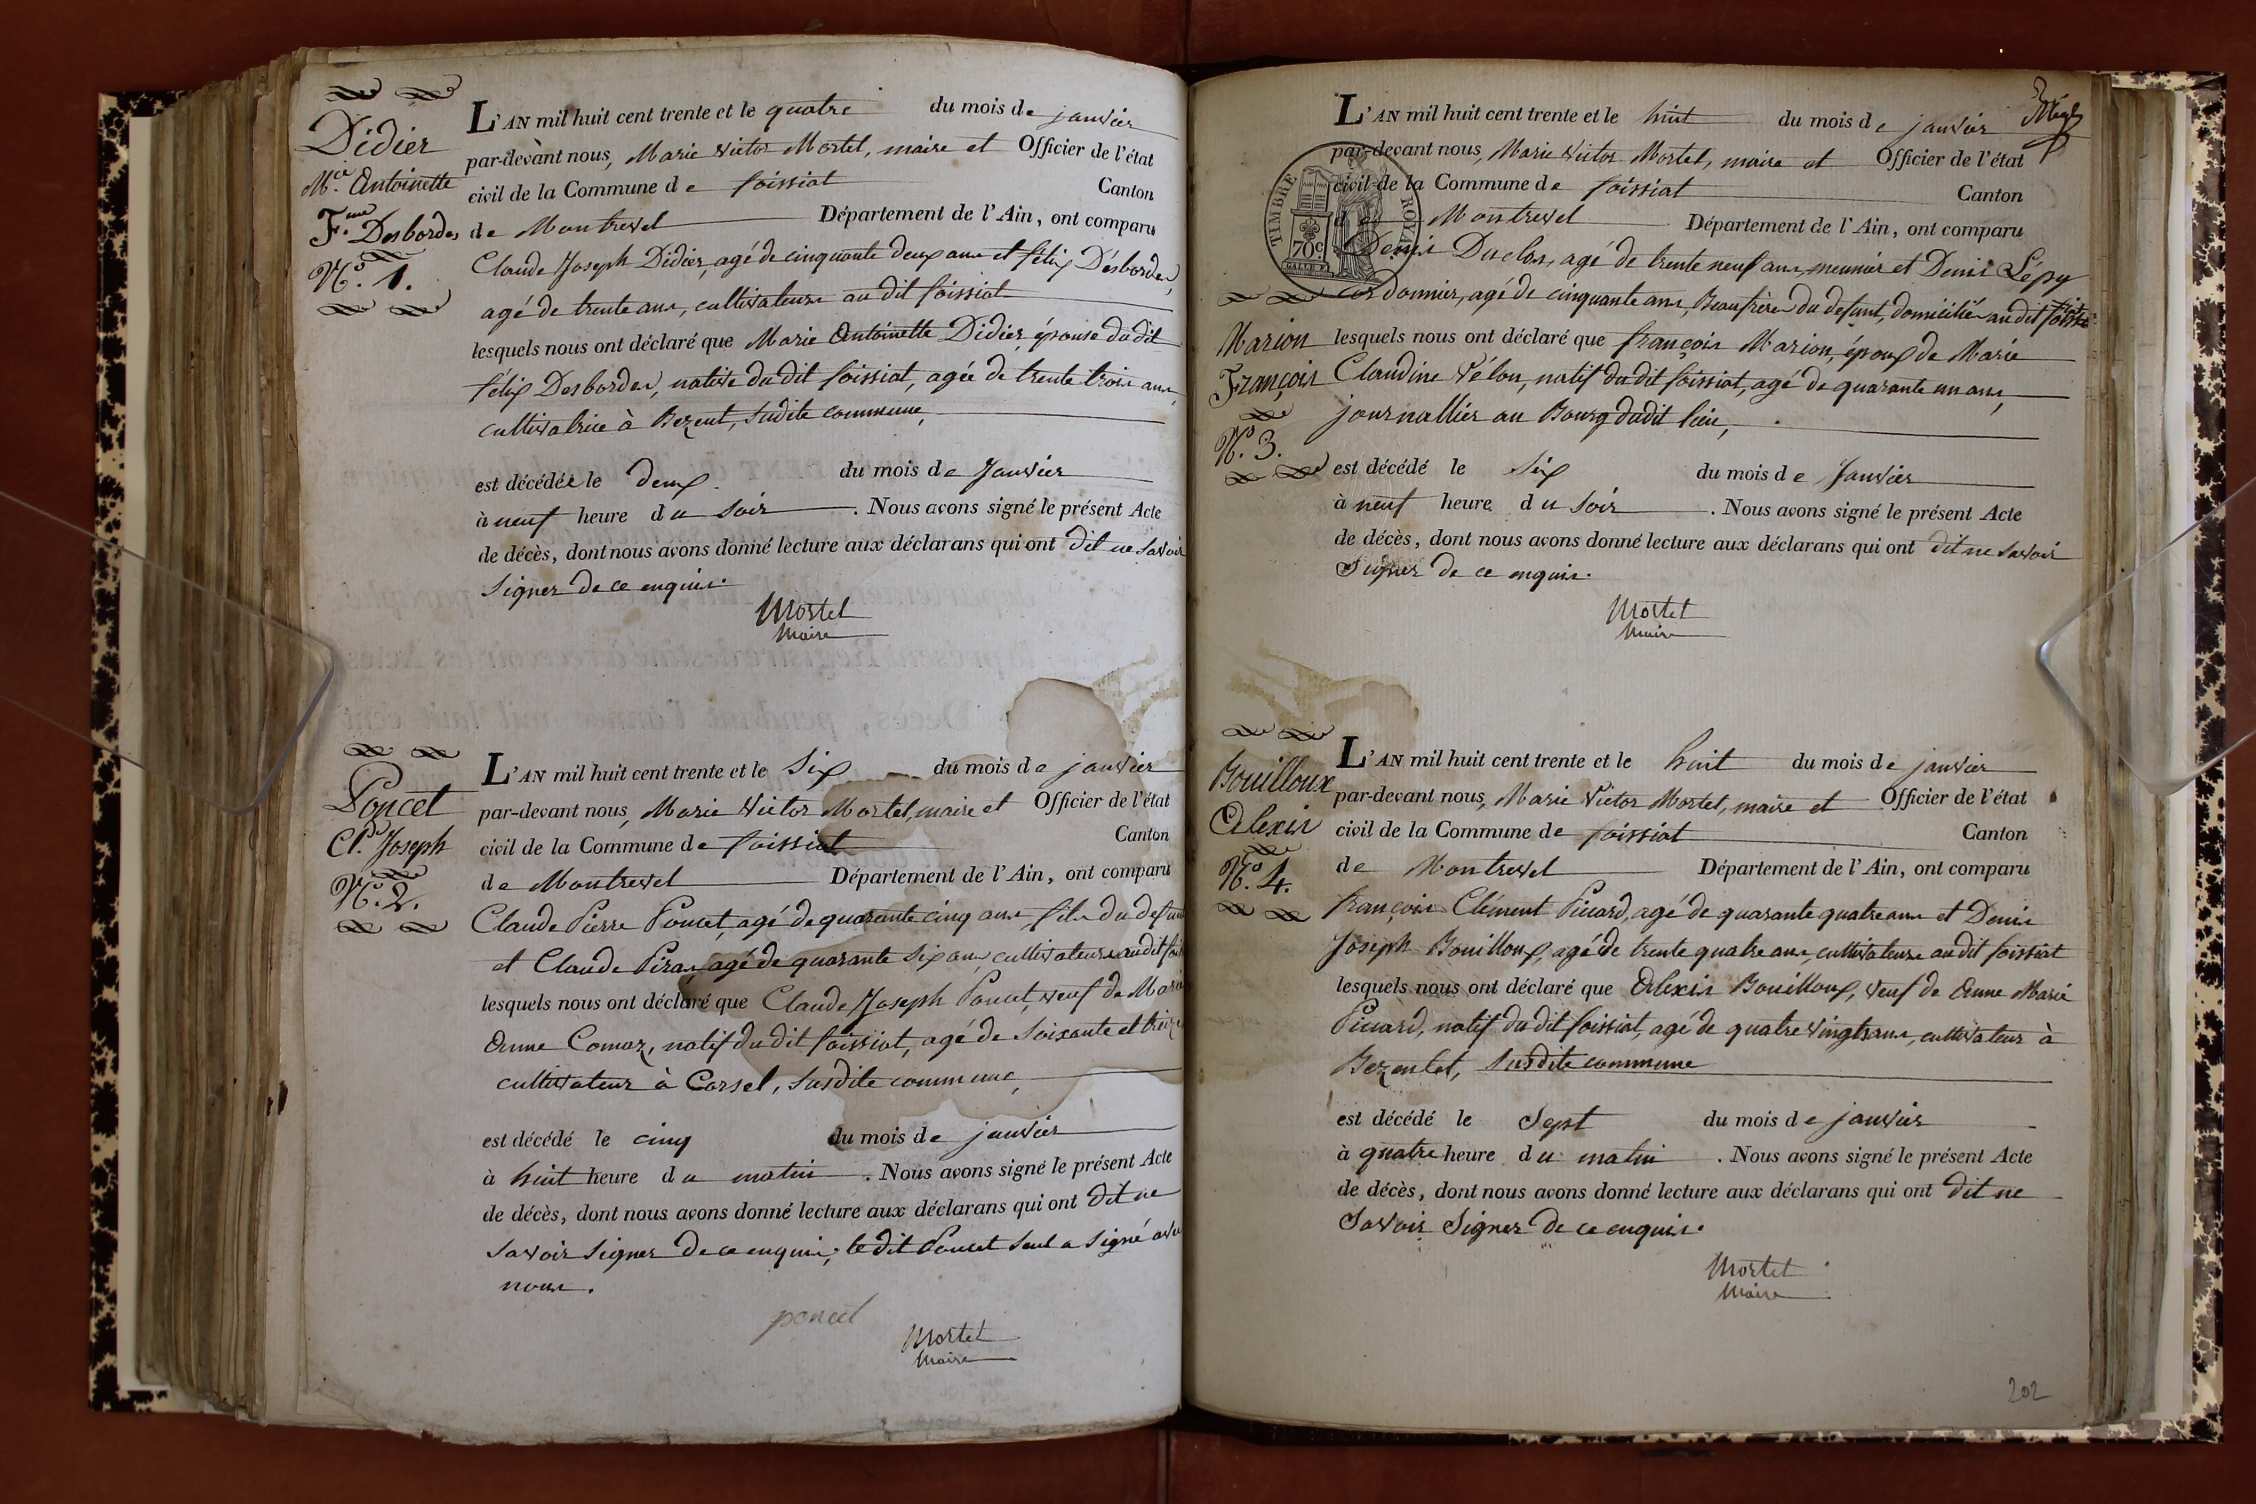 Didier
Mie. Antoinette
Fme. Desbordes
No. 1.
L'AN mil huit cent trente et le quatre du mois de janvier
par-devant nous, Marie Victor Mortel, maire et Officier de l'état
civil de la Commune de foissiat Canton
de Montrevel Département de l'Ain, ont comparu
Claude Joseph Didier, agé de cinquante deux ans et félix Désbordes,
agé de trente ans, cultivateurs au dit foissiat
lesquels nous ont déclaré que Marie Antoinette Didier, épouse dudit
félix Desbordes, native du dit foissiat, agée de trente trois ans,
cultivatrice à Bezent, sudite commune,
est décédée le deux du mois de Janvier
à neuf heure du soir. Nous avons signé le présent Acte
de décès, dont nous avons donné lecture aux déclarans qui ont dit ne savoir
signer de ce enquis.
Mortel
Maire
Poncet
Cl. Joseph
No. 2.
L'AN mil huit cent trente et le Six du mois de janvier
par-devant nous, Marie Victor Mortel, maire et Officier de l'état
civil de la Commune de foissiat Canton
de Montrevel Département de l'Ain, ont comparu
Claude Pierre Poncet, agé de quarante cinq ans, fils du defunt
et Claude agé de quarante six ans, cultivateurs audit
lesquels nous ont déclaré que Claude Joseph Poncet, veuf de Marie
Anne Comaz, natif du dit foissiat, agé de Soixante et treize
cultivateur à Corsel, susdite commune,
est décédé le cinq du mois de janvier
à huit heure du matin. Nous avons signé le présent Acte
de décès, dont nous avons donné lecture aux déclarans qui ont dit ne
savoir signer de ce enquis; le dit Poncet seul a signé avec
nous.
poncet
Mortel
Maire
L'AN mil huit cent trente et le huit du mois de janvier
par-devant nous, Marie Victor Mortel, maire et Officier de l'état
civil de la Commune de foissiat Canton
de Montrevel Département de l'Ain, ont comparu
TIMBRE ROYAL
70c.
Denis Duclos, agé de trente neuf ans, meunier et Denis Lépy
cordonnier, agé de cinquante ans, Beaufrère du defunt, domiciliés au dit foissiat
Marion
François
No. 3.
lesquels nous ont déclaré que françois Marion, époux de Marie
Claudine Vélon, natif du dit foissiat, agé de quarante un ans,
journallier au Bourg dudit lieu,
est décédé le Six du mois de Janvier
à neuf heure du soir. Nous avons signé le présent Acte
de décès, dont nous avons donné lecture aux déclarans qui ont dit ne savoir
Signer de ce enquis.
Mortel
Maire
Bouilloux
Alexis
No. 4.
L'AN mil huit cent trente et le huit du mois de janvier
par-devant nous, Marie Victor Mortel, maire et Officier de l'état
civil de la Commune de foissiat Canton
de Montrevel Département de l'Ain, ont comparu
françois Clément Picard, agé de quarante quatre ans et Denis
Joseph Bouilloux, agé de trente quatre ans, cultivateurs audit foissiat
lesquels nous ont déclaré que Alexis Bouilloux, veuf de Anne Marie
Picard, natif du dit foissiat, agé de quatre vingts ans, cultivateur à
Bezentet, susdite commune
est décédé le Sept du mois de janvier
à quatre heure du matin. Nous avons signé le présent Acte
de décès, dont nous avons donné lecture aux déclarans qui ont dit ne
Savoir Signer de ce enquis.
Mortel
Maire
202